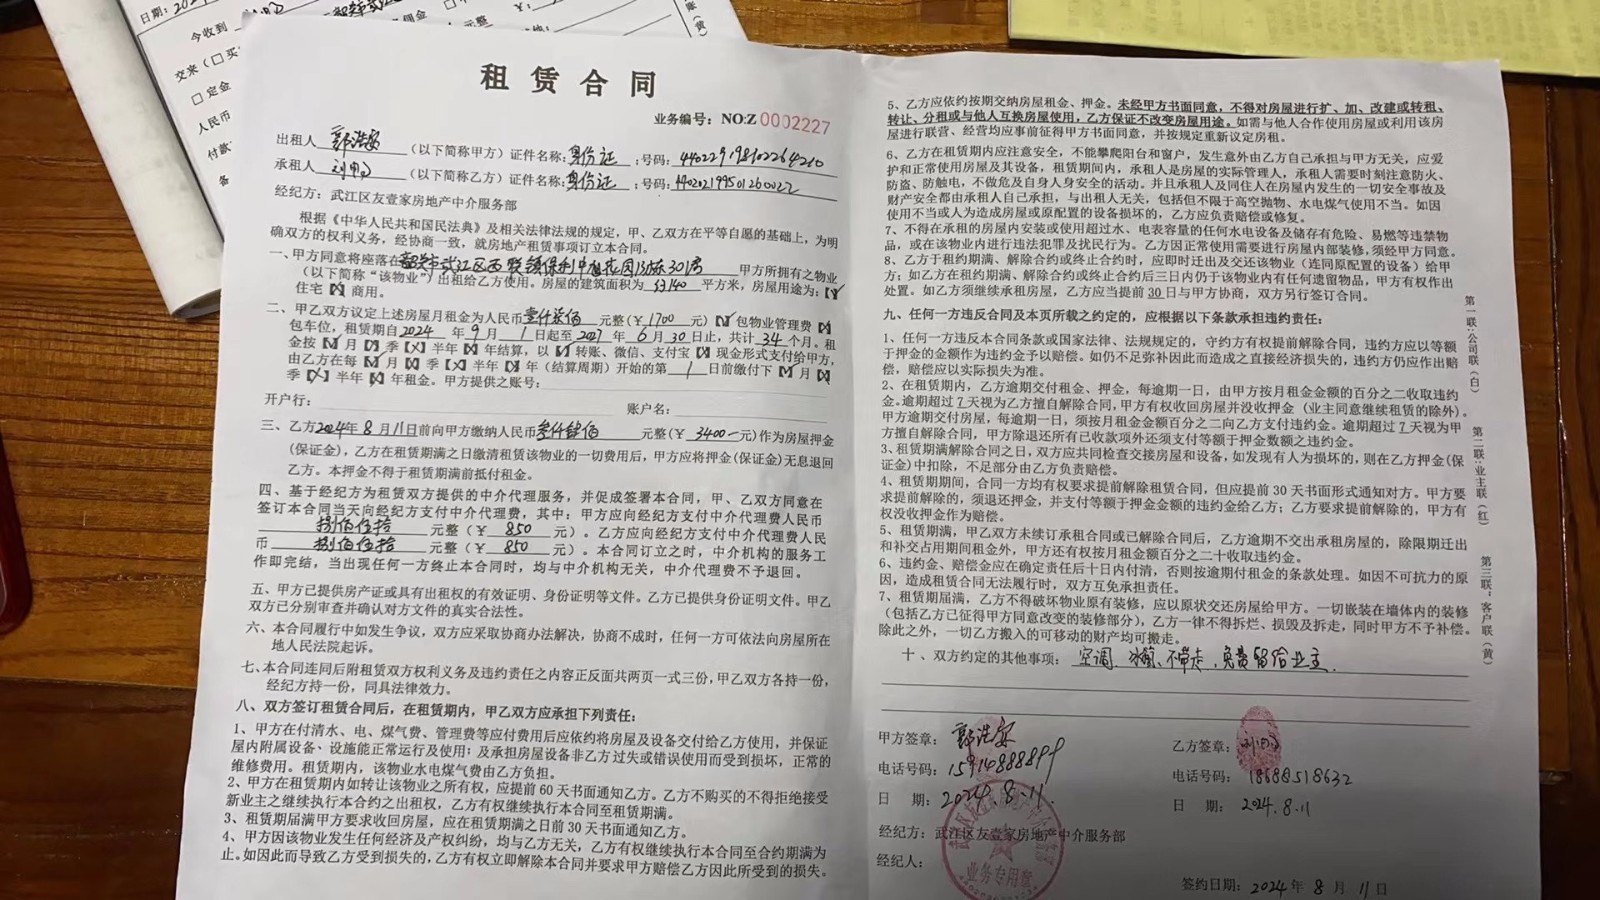 日期:
今收到
交来(□买
□定金
人民币
付款
备
佣金
元整
租赁合同
业务编号: NO:Z 0002227
出租人 郭浩安 (以下简称甲方)证件名称:身份证;号码:440229198102264210
承租人 (以下简称乙方)证件名称:身份证;号码:440202199501260022
经纪方:武江区友壹家房地产中介服务部
根据《中华人民共和国民法典》及相关法律法规的规定,甲、乙双方在平等自愿的基础上,为明
确双方的权利义务,经协商一致,就房地产租赁事项订立本合同。
一、甲方同意将座落在韶关市武江区西联镇保利中 花园 栋30 甲方所拥有之物业
(以下简称“该物业”)出租给乙方使用。房屋的建筑面积为 140 平方米,房屋用途为:【✓】
住宅【×】商用。
二、甲乙双方议定上述房屋月租金为人民币壹仟柒佰 元整(¥ 1700 元)【✓】包物业管理费【×】
包车位,租赁期自2024 年 9 月 1 日起至2027 年 6 月 30 日止,共计 34 个月。租
金按【✓】月【×】季【×】半年【×】年结算,以【✓】转账、微信、支付宝【×】现金形式支付给甲方,
由乙方在每【✓】月【×】季【×】半年【×】年(结算周期)开始的第 1 日前缴付下【✓】月【×】
季【×】半年【×】年租金。甲方提供之账号:
开户行: 账户名:
三、乙方2024年 8 月 11日前向甲方缴纳人民币叁仟肆佰 元整(¥ 3400 元)作为房屋押金
(保证金),乙方在租赁期满之日缴清租赁该物业的一切费用后,甲方应将押金(保证金)无息退回
乙方。本押金不得于租赁期满前抵付租金。
四、基于经纪方为租赁双方提供的中介代理服务,并促成签署本合同,甲、乙双方同意在
签订本合同当天向经纪方支付中介代理费,其中:甲方应向经纪方支付中介代理费人民币
捌佰伍拾 元整(¥ 850 元)。乙方应向经纪方支付中介代理费人民
币 捌佰伍拾 元整(¥ 850 元)。本合同订立之时,中介机构的服务工
作即完结,当出现任何一方终止本合同时,均与中介机构无关,中介代理费不予退回。
五、甲方已提供房产证或具有出租权的有效证明、身份证明等文件。乙方已提供身份证明文件。甲乙
双方已分别审查并确认对方文件的真实合法性。
六、本合同履行中如发生争议,双方应采取协商办法解决,协商不成时,任何一方可依法向房屋所在
地人民法院起诉。
七、本合同连同后附租赁双方权利义务及违约责任之内容正反面共两页一式三份,甲乙双方各持一份,
经纪方持一份,同具法律效力。
八、双方签订租赁合同后,在租赁期内,甲乙双方应承担下列责任:
1、甲方在付清水、电、煤气费、管理费等应付费用后应依约将房屋及设备交付给乙方使用,并保证
屋内附属设备、设施能正常运行及使用;及承担房屋设备非乙方过失或错误使用而受到损坏,正常的
维修费用。租赁期内,该物业水电煤气费由乙方负担。
2、甲方在租赁期内如转让该物业之所有权,应提前60天书面通知乙方。乙方不购买的不得拒绝接受
新业主之继续执行本合约之出租权,乙方有权继续执行本合同至租赁期满。
3、租赁期届满甲方要求收回房屋,应在租赁期满之日前30天书面通知乙方。
4、甲方因该物业发生任何经济及产权纠纷,均与乙方无关,乙方有权继续执行本合同至合约期满为
止。如因此而导致乙方受到损失的,乙方有权立即解除本合同并要求甲方赔偿乙方因此所受到的损失。
5、乙方应依约按期交纳房屋租金、押金。未经甲方书面同意,不得对房屋进行扩、加、改建或转租、
转让、分租或与他人互换房屋使用,乙方保证不改变房屋用途。如需与他人合作使用房屋或利用该房
屋进行联营、经营均应事前征得甲方书面同意,并按规定重新议定房租。
6、乙方在租赁期内应注意安全,不能攀爬阳台和窗户,发生意外由乙方自己承担与甲方无关,应爱
护和正常使用房屋及其设备,租赁期间内,承租人是房屋的实际管理人,承租人需要时刻注意防火、
防盗、防触电,不做危及自身人身安全的活动。并且承租人及同住人在房屋内发生的一切安全事故及
财产安全都由承租人自己承担,与出租人无关,包括但不限于高空抛物、水电煤气使用不当。如因
使用不当或人为造成房屋或原配置的设备损坏的,乙方应负责赔偿或修复。
7、不得在承租的房屋内安装或使用超过水、电表容量的任何水电设备及储存有危险、易燃等违禁物
品,或在该物业内进行违法犯罪及扰民行为。乙方因正常使用需要进行房屋内部装修,须经甲方同意。
8、乙方于租约期满、解除合约或终止合约时,应即时迁出及交还该物业(连同原配置的设备)给甲
方;如乙方在租约期满、解除合约或终止合约后三日内仍于该物业内有任何遗留物品,甲方有权作出
处置。如乙方须继续承租房屋,乙方应当提前30日与甲方协商,双方另行签订合同。
九、任何一方违反合同及本页所载之约定的,应根据以下条款承担违约责任:
1、任何一方违反本合同条款或国家法律、法规规定的,守约方有权提前解除合同,违约方应以等额
于押金的金额作为违约金予以赔偿。如仍不足弥补因此而造成之直接经济损失的,违约方仍应作出赔
偿,赔偿应以实际损失为准。
2、在租赁期内,乙方逾期交付租金、押金,每逾期一日,由甲方按月租金金额的百分之二收取违约
金。逾期超过7天视为乙方擅自解除合同,甲方有权收回房屋并没收押金(业主同意继续租赁的除外)。
甲方逾期交付房屋,每逾期一日,须按租金金额百分之二向乙方支付违约金。逾期超过7天视为甲
方擅自解除合同,甲方除退还所有已收款项外还须支付等额于押金数额之违约金。
3、租赁期满解除合同之日,双方应共同检查交接房屋和设备,如发现有人为损坏的,则在乙方押金(保
证金)中扣除,不足部分由乙方负责赔偿。
4、租赁期期间,合同一方均有权要求提前解除租赁合同,但应提前30天书面形式通知对方。甲方要
求提前解除的,须退还押金,并支付等额于押金金额的违约金给乙方;乙方要求提前解除的,甲方有
权没收押金作为赔偿。
5、租赁期满,甲乙双方未续订承租合同或已解除合同后,乙方逾期不交出承租房屋的,除限期迁出
和补交占用期间租金外,甲方还有权按月租金额百分之二十收取违约金。
6、违约金、赔偿金应在确定责任后十日内付清,否则按逾期付租金的条款处理。如因不可抗力的原
因,造成租赁合同无法履行时,双方互免承担责任。
7、租赁期届满,乙方不得破坏物业原有装修,应以原状交还房屋给甲方。一切嵌装在墙体内的装修
(包括乙方已征得甲方同意改变的装修部分),乙方一律不得拆烂、损毁及拆走,同时甲方不予补偿。
除此之外,一切乙方搬入的可移动的财产均可搬走。
十、双方约定的其他事项: 空调、冰箱、不带走,免费留给业主.
甲方签章: 郭浩安
电话号码: 15914888899
日 期: 2024.8.11.
乙方签章:
电话号码: 18688518632
日 期: 2024.8.11
经纪方:武江区友壹家房地产中介服务部
经纪人:
业务专用章
签约日期:2024年 8 月 11 日
第一联:公司联(白)
第二联:业主联(红)
第三联:客户联(黄)